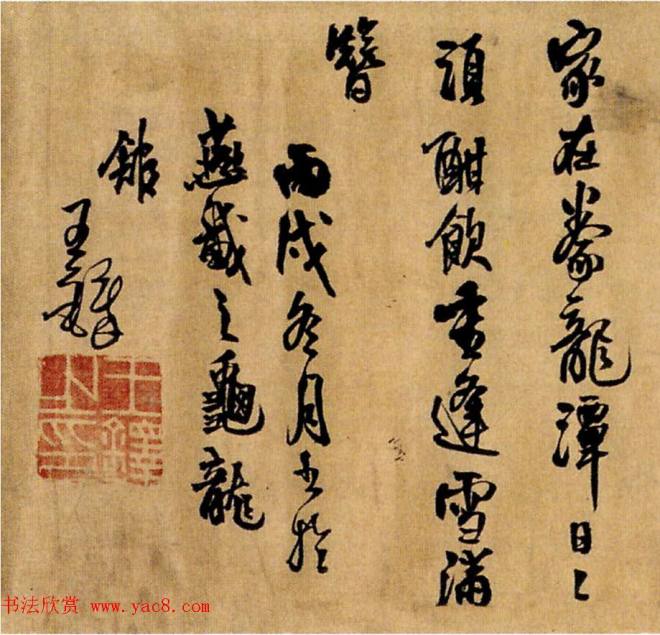 家在豢龍潭日〻
須酣飲重逢雪滿
簪
丙戌冬月书於
燕畿之龜龍
館
王鐸
王鐸之印
书法欣赏 www.yac8.com